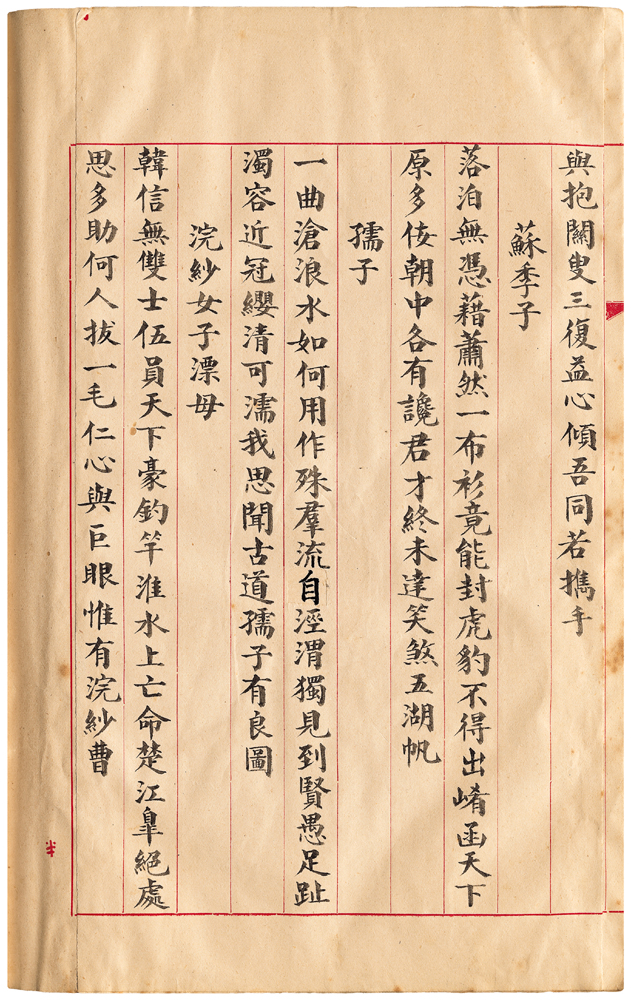 與抱關叟三復益心傾吾同若攜手
蘇季子
落泊無憑藉蕭然一布衫竟能封虎豹不得出崤函天下
原多佞朝中各有讒君才終未達笑煞五湖帆
孺子
一曲滄浪水如何用作殊羣流自涇渭獨見到賢愚足趾
濁容近冠纓清可濡我思聞古道孺子有良圖
浣紗女子漂母
韓信無雙士伍員天下豪釣竿淮水上亡命楚江臯絕處
思多助何人拔一毛仁心與巨眼惟有浣紗曹